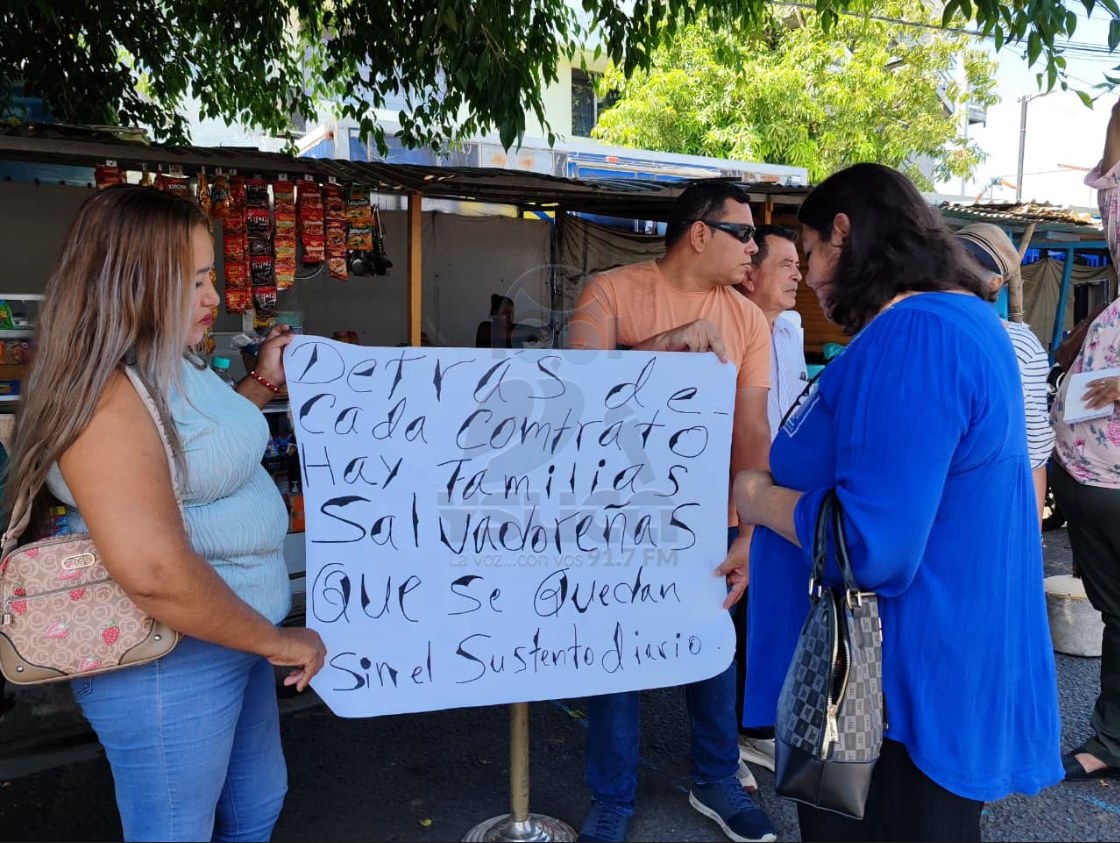 Detras de
cada comtrato
Hay Familias
Salvadoreñas
Que se Quedan
Sin el Sustento diario.
La voz...con vos 91.7 FM